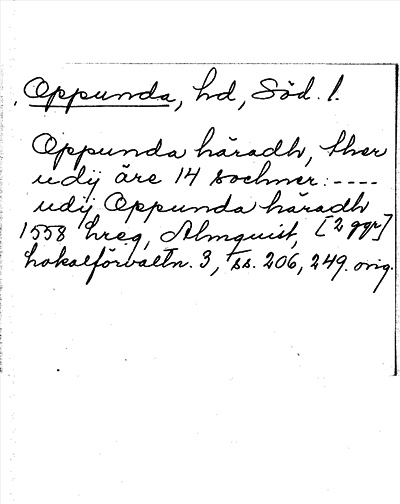 Oppunda, hd, Söd. l.
Oppunda häradh, ther
udij äre 14 sochner: ----
udij Oppunda häradh
1558 hreg, Almquist, [2 ggr]
Lokalförvaltn. 3, ss. 206, 249. orig.